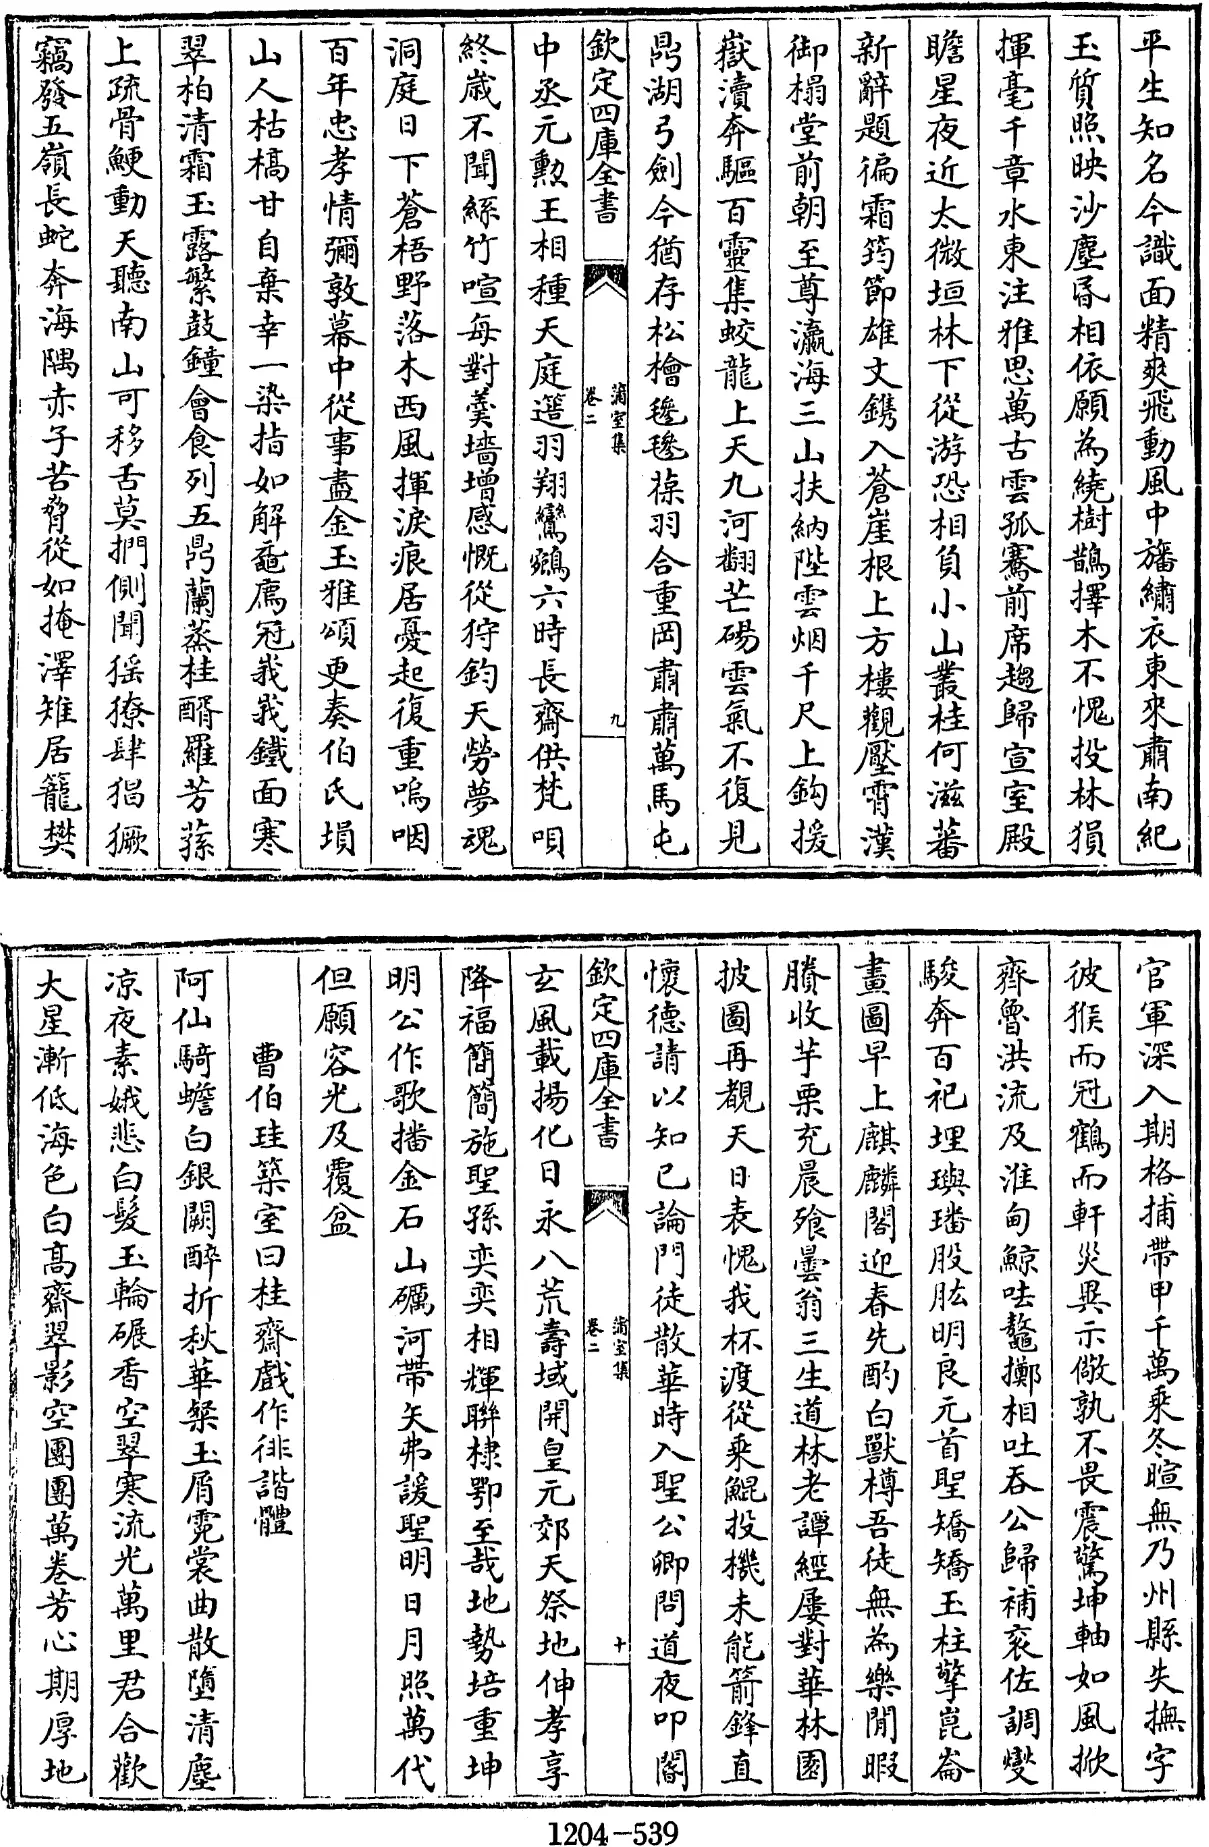 平生知名今識面精爽飛動風中旛繡衣東來肅南紀
玉質照映沙塵昏相依願為繞樹鵲擇木不愧投林猿
揮毫千章水東注雅思萬古雲孤騫前席趨歸宣室殿
瞻星夜近太微垣林下從游恐相負小山叢桂何滋蕃
新辭題徧霜筠節雄文鐫入蒼崖根上方樓觀壓霄漢
御榻堂前朝至尊瀛海三山扶納陛雲烟千尺上鈎援
嶽瀆奔驅百靈集蛟龍上天九河翻芒碭雲氣不復見
鼎湖弓劍今猶存松檜毿毿葆羽合重岡肅肅萬馬屯
欽定四庫全書
蒲室集
卷二
九
中丞元勲王相種天庭簉羽翔鸞鵷六時長齋供梵唄
終歲不聞絲竹喧每對羹墻增感慨從狩鈞天勞夢魂
洞庭日下蒼梧野落木西風揮淚痕居憂起復重嗚咽
百年忠孝情彌敦幕中從事盡金玉雅頌更奏伯氏塤
山人枯槁甘自棄幸一染指如解黿廌冠峩峩鐵面寒
翠柏清霜玉露繁鼓鐘會食列五鼎蘭蒸桂醑羅芳蓀
上疏骨鯁動天聽南山可移舌莫捫側聞猺獠肆猖獗
竊發五嶺長蛇奔海隅赤子苦脅從如掩澤雉居籠樊
官軍深入期格捕帶甲千萬乘冬暄無乃州縣失撫字
彼猴而冠鶴而軒災異示儆孰不畏震驚坤軸如風掀
齊魯洪流及淮甸鯨呿鼇擲相吐吞公歸補衮佐調燮
駿奔百祀埋璵璠股肱明良元首聖矯矯玉柱擎崑崙
畫圖早上麒麟閣迎春先酌白獸樽吾徒無為樂閒暇
賸收芋栗充晨飱曇翁三生道林老譚經屢對華林園
披圖再覩天日表愧我杯渡從乘鯤投機未能箭鋒直
懷德請以知已論門徒散華時入聖公卿問道夜叩閽
欽定四庫全書
蒲室集
卷二
十
玄風載揚化日永八荒壽域開皇元郊天祭地伸孝享
降福簡簡施聖孫奕奕相輝聯棣鄂至哉地勢培重坤
明公作歌播金石山礪河帶矢弗諼聖明日月照萬代
但願容光及覆盆
曹伯珪築室曰桂齋戲作徘諧體
阿仙騎蟾白銀闕醉折秋華粲玉屑霓裳曲散墮清塵
凉夜素娥悲白髮玉輪碾香空翠寒流光萬里君合歡
大星漸低海色白高齋翠影空團團萬卷芳心期厚地
1204-539